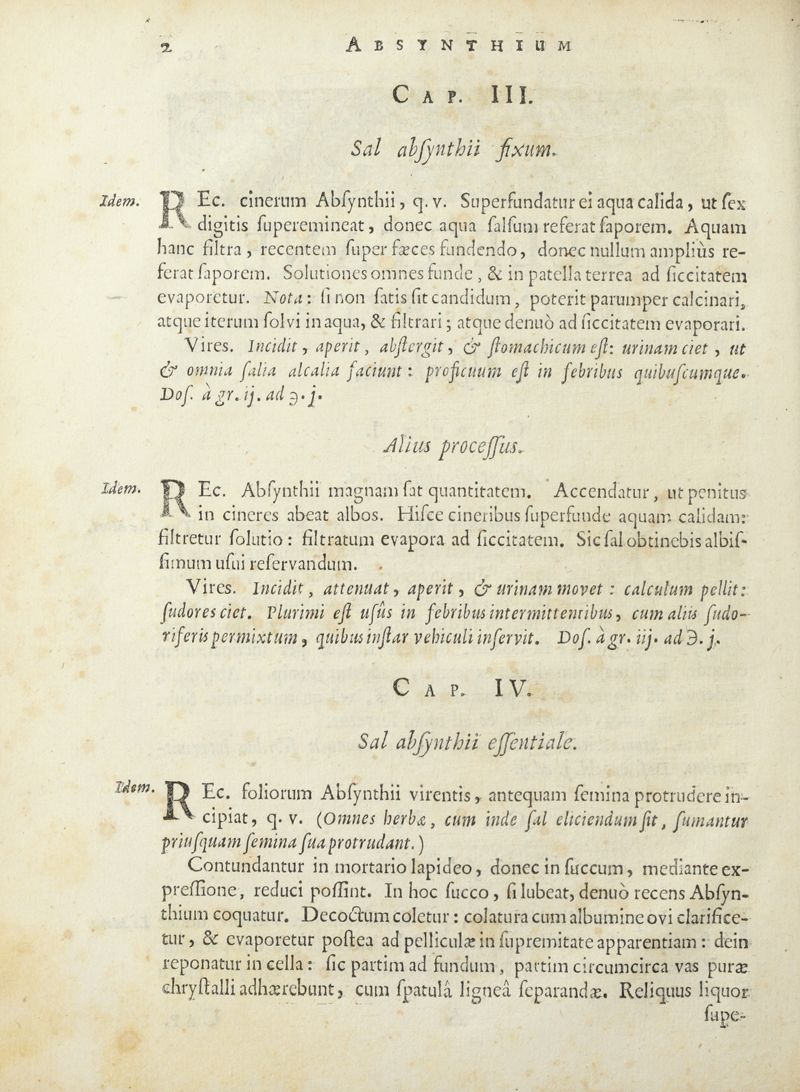 2 ABSYNTHIUM
CAP. III.
Sal abſynthii fixum.
Idem. REc. cinerum Abſynthii, q. v. Superfundatur ei aqua calida, ut ſex
digitis ſuperemineat, donec aqua ſalſum referat ſaporem. Aquam
hanc filtra, recentem ſuper fæces fundendo, donec nullum ampliùs re-
ferat ſaporem. Solutiones omnes funde, & in patella terrea ad ſiccitatem
evaporetur. Nota: ſi non ſatis ſit candidum, poterit parumper calcinari,
atque iterum ſolvi in aqua, & filtrari; atque denuò ad ſiccitatem evaporari.
Vires. Incidit, aperit, abſtergit, & ſtomachicum eſt: urinam ciet, ut
& omnia ſalia alcalia faciunt: proficuum eſt in febribus quibuſcumque.
Doſ. à gr. ij. ad ℈. j.
Alius proceſſus.
Idem. REc. Abſynthii magnam ſat quantitatem. Accendatur, ut penitus
in cineres abeat albos. Hiſce cineribus ſuperfunde aquam calidam:
filtretur ſolutio: filtratum evapora ad ſiccitatem. Sic ſal obtinebis albiſ-
ſimum uſui reſervandum.
Vires. Incidit, attenuat, aperit, & urinam movet: calculum pellit:
ſudores ciet. Plurimi eſt uſûs in febribus intermittentibus, cum aliis ſudo-
riferis permixtum, quibus inſtar vehiculi inſervit. Doſ. à gr. iij. ad ℈. j.
CAP. IV.
Sal abſynthii eſſentiale.
Idem. REc. foliorum Abſynthii virentis, antequam ſemina protrudere in-
cipiat, q. v. (Omnes herbæ, cum inde ſal eliciendum ſit, ſumantur
priuſquam ſemina ſua protrudant.)
Contundantur in mortario lapideo, donec in ſuccum, mediante ex-
preſſione, reduci poſſint. In hoc ſucco, ſi lubeat, denuò recens Abſyn-
thium coquatur. Decoctum coletur: colatura cum albumine ovi clarifice-
tur, & evaporetur poſtea ad pelliculæ in ſupremitate apparentiam: dein
reponatur in cella: ſic partim ad fundum, partim circumcirca vas puræ
chryſtalli adhærebunt, cum ſpatulâ ligneâ ſeparandæ. Reliquus liquor
ſupe-